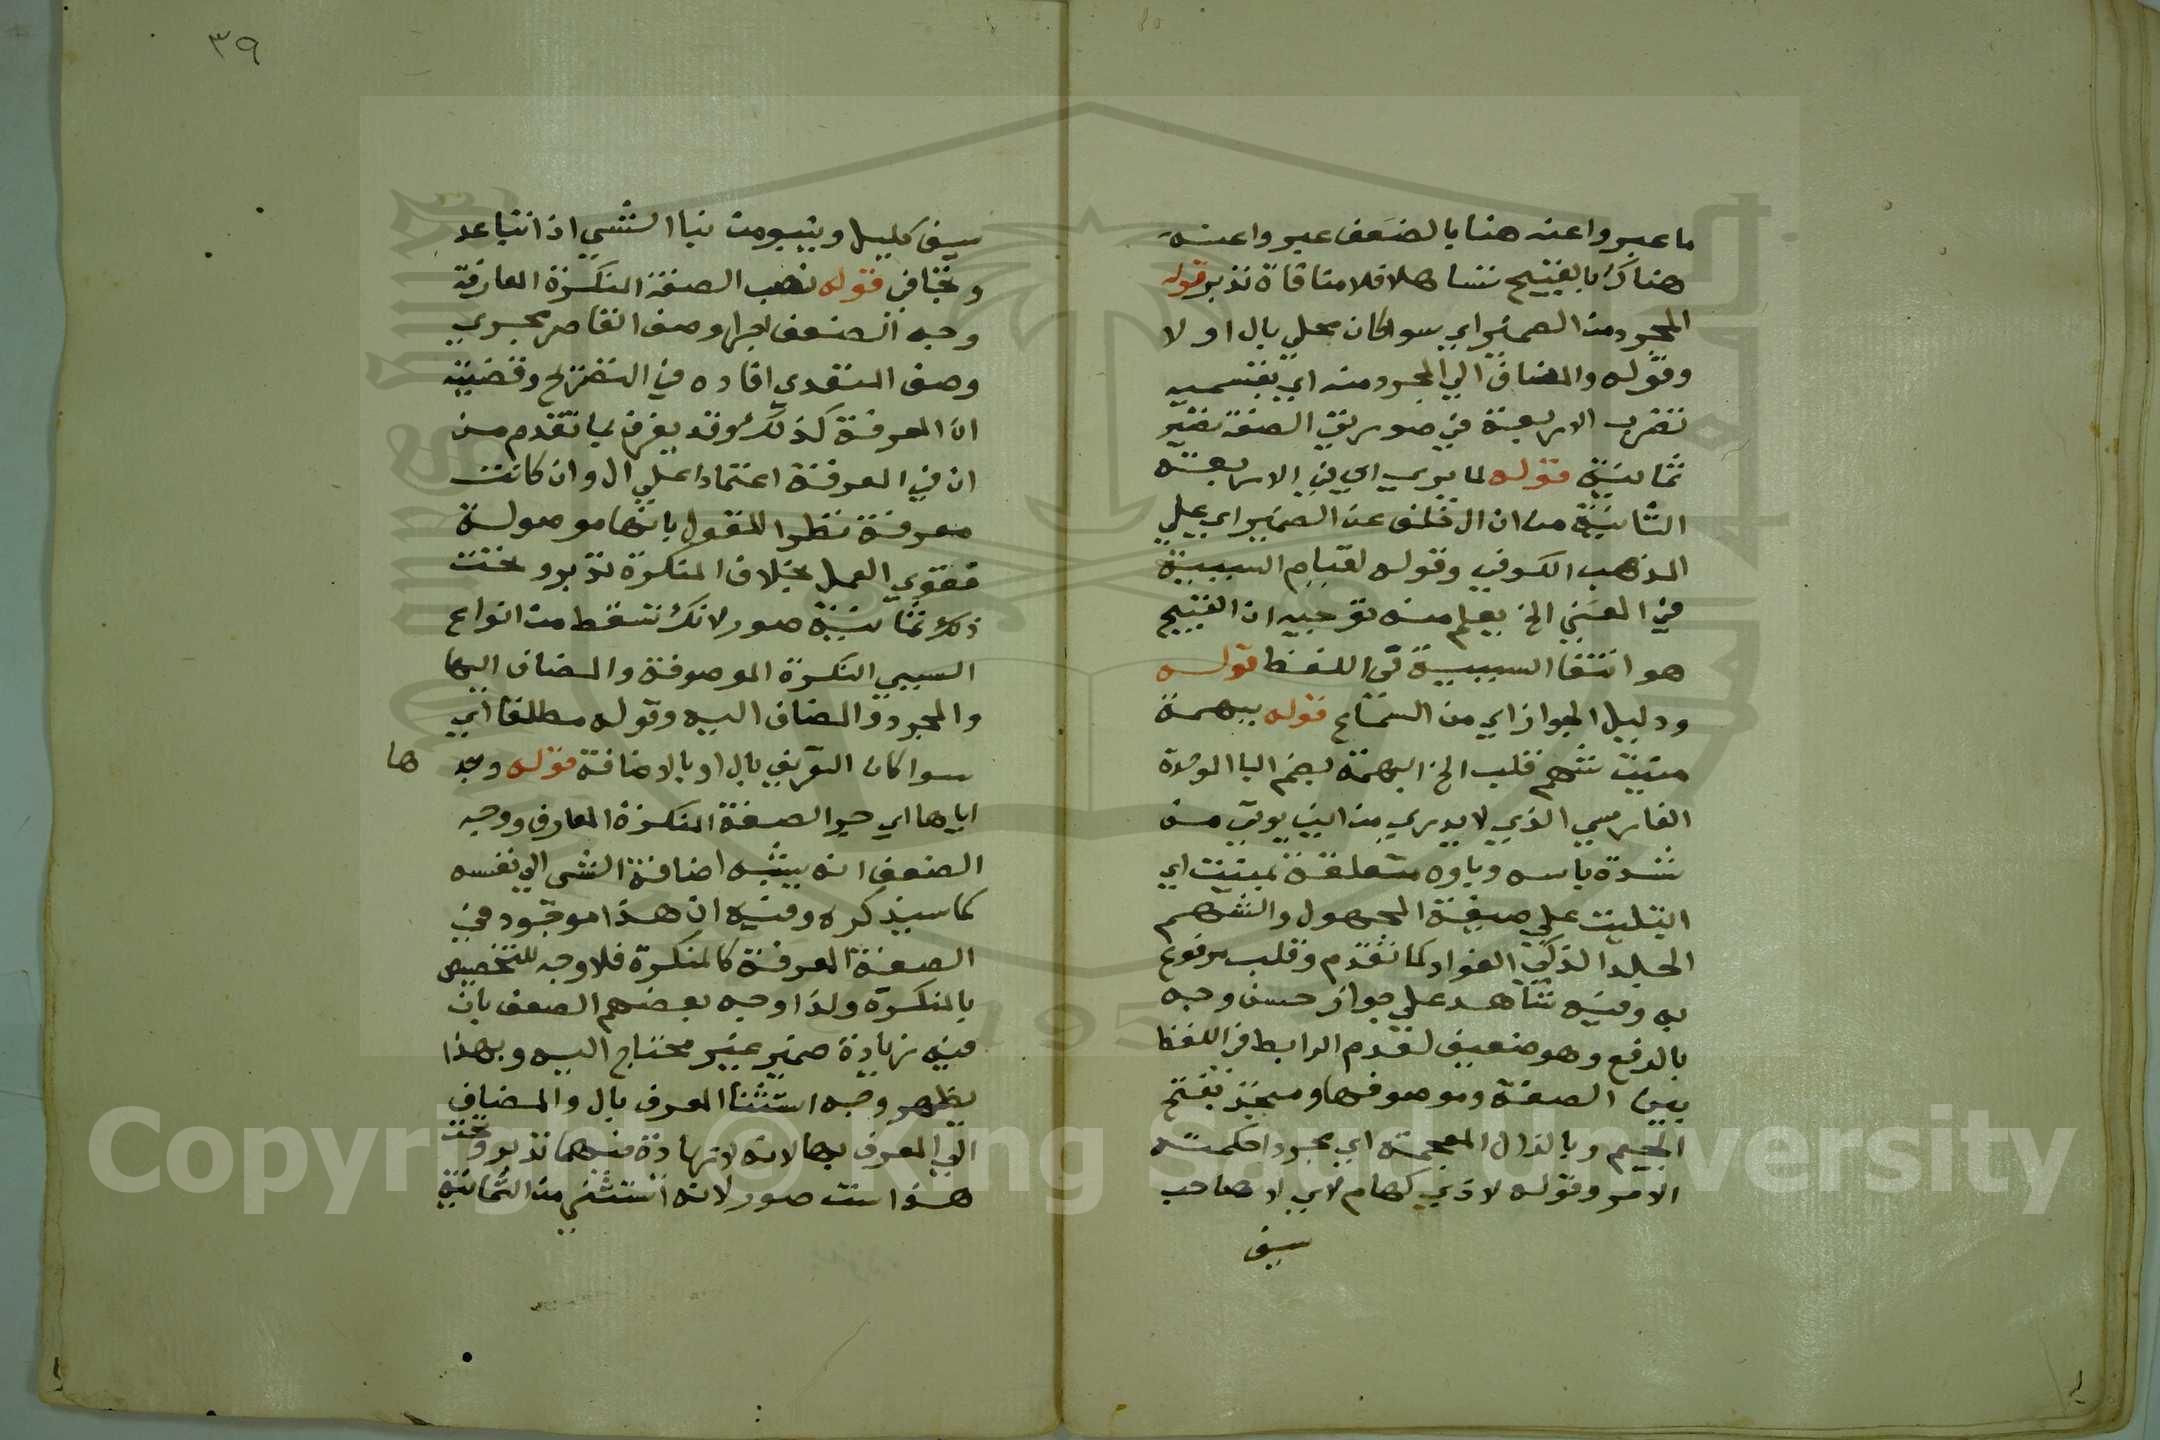 ما عبروا عنه هنا بالضعف عبروا عنه
هناك بالقبيح تساهلا فلا منافاة تدبر قوله
المجرد من الضمير اي سوا كان محلي بال او لا
وقوله والمضاف الي المجرد منه اي بقسميه
تضرب الاربعة في صورتي الصفة تصير
ثمانية قوله لما يري اي في الاربعة
الثانية من ان ال خلف عن الضمير اي علي
المذهب الكوفي وقوله لقيام السببية
في المعني الخ يعلم منه توجيه ان القبيح
هو انتفا السببية في اللفظ قوله
ودليل الجواز اي من السماع قوله ببهمة
منيت شهم قلب الخ البهمة بضم البا الموحدة
الفارس الذي لا يدري من اين يوتي من
شدة باسه وباوه متعلقة بمنيت اي
ابتليت علي صيغة المجهول والشهم
الجلد الذكي الفواد كما تقدم وقلب مرفوع
به وفيه شاهد علي جواز حسن وجه
بالرفع وهو ضعيف لعدم الرابط في اللفظ
بين الصفة وموصوفها ومنجذ بفتح
الجيم وبالذال المعجمة اي مجرد احكمته
الامر وقوله لا ذي كهام اي لا صاحب
سيف
٣٩
سيف كليل وينبو من نبا الشي اذا تباعد
وتجافي قوله نصب الصفة النكرة المعارفة
وجه الضعف اجرا وصف القاصر مجري
وصف المتعدي افاده في التصريح وقضيته
ان المعرفة كذلك وقد يفرق بما تقدم من
ان في المعرفة اعتمادا علي ال وان كانت
معرفة نظرا للقول بانها موصولة
فقوي العمل بخلاف المنكرة تدبر وتحت
ذلك ثمانية صور لانك تسقط من انواع
السببي النكرة الموصوفة والمضاف اليها
والمجرد والمضاف اليه وقوله مطلقا اي
سوا كان التعريف بال او بالاضافة قوله وجر ها
اياها اي جر الصفة النكرة المعارف ووجه
الضعف انه يشبه اضافة الشي الي نفسه
كما سيذكره وفيه ان هذا موجود في
الصفة المعرفة كالمنكرة فلا وجه للتخصيص
بالمنكرة ولذا وجه بعضهم الضعف بان
فيه زيادة ضمير غير محتاج اليه وبهذا
يظهر وجه استثنا المعرف بال والمضاف
الي المعرف بها لانه لا زيادة فيهما تدبر وتحت
هذا ست صور لانه استثني من الثمانية